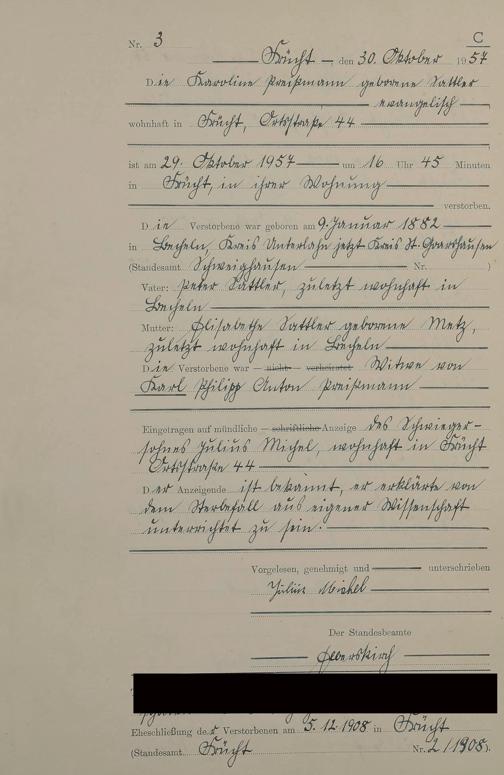 C
Nr. 3
Frücht, den 30. Oktober 1957
Die Karoline Preißmann geborene Sattler
evangelisch
wohnhaft in Frücht, Ortsstraße 44
ist am 29. Oktober 1957 um 16 Uhr 45 Minuten
in Frücht, in ihrer Wohnung
verstorben.
Die Verstorbene war geboren am 9. Januar 1882
in Becheln, Kreis Unterlahn jetzt Kreis St. Goarshausen
(Standesamt Schweighausen Nr. )
Vater: Peter Sattler, zuletzt wohnhaft in
Becheln
Mutter: Elisabethe Sattler geborene Metz,
zuletzt wohnhaft in Becheln
Die Verstorbene war – nicht – verheiratet Witwe von
Karl Philipp Anton Preißmann
Eingetragen auf mündliche – schriftliche Anzeige des Schwieger-
sohnes Julius Michel, wohnhaft in Frücht
Ortsstraße 44
Der Anzeigende ist bekannt, er erklärte von
dem Sterbefall aus eigener Wissenschaft
unterrichtet zu sein.
Vorgelesen, genehmigt und unterschrieben
Julius Michel
Der Standesbeamte
Eheschließung der Verstorbenen am 5.12.1908 in Frücht
(Standesamt Frücht Nr. 2/1908).